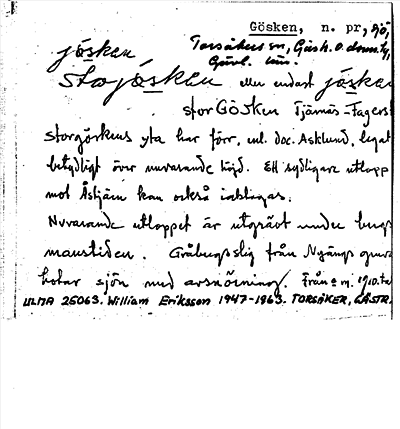 Gösken, n. pr, sjö,
Torsåkers sn, Gästr. ö. domst,
Gävl. län.
jösken
Storjösken eller endast jösken
stor Gösken Tjärnäs-Fagers
Storgöskens yta har förr, enl. doc. Asklund, legat
betydligt över nuvarande höjd. Ett sydligare utlopp
mot Åstjärn kan också iakttagas.
Nuvarande utloppet är utgrävt under bergs
manstiden. Gråbergsslig från Nyängs gruva
hotar sjön med avsnörning. Från m. 1910.ta
ULMA 25063. William Eriksson 1947-1963. TORSÅKER, GÄSTR.